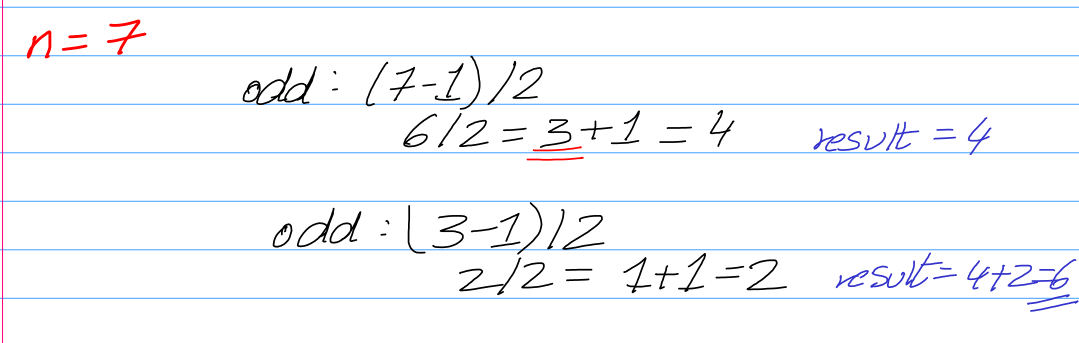 n = 7
odd : (7-1)/2
6/2 = 3+1 = 4 result = 4
odd : (3-1)/2
2/2 = 1+1=2 result = 4+2=6